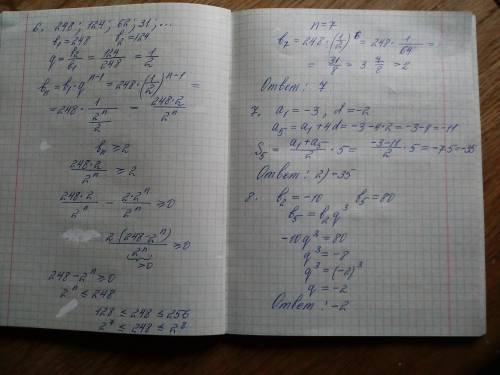 6. 248; 124; 62; 31; ...
b₁ = 248   b₂ = 124
q = b₂/b₁ = 124/248 = 1/2
bₙ = b₁·qⁿ⁻¹ = 248·(1/2)ⁿ⁻¹ =
= 248·1/(2ⁿ/2) = 248·2/2ⁿ
bₙ ≥ 2
248·2/2ⁿ ≥ 2
248·2/2ⁿ - 2·2ⁿ/2ⁿ ≥ 0
2(248-2ⁿ)/2ⁿ ≥ 0
>0
248-2ⁿ ≥ 0
2ⁿ ≤ 248
128 ≤ 248 ≤ 256
2⁷ ≤ 248 ≤ 2⁸
n = 7
b₇ = 248·(1/2)⁶ = 248·1/64 =
= 31/8 = 3 7/8 > 2
Ответ: 7
7. a₁ = -3, d = -2
a₅ = a₁+4d = -3-4·2 = -3-8 = -11
S₅ = (a₁+a₅)/2 · 5 = (-3-11)/2 · 5 = -7·5 = -35
Ответ: 2) -35
8. b₂ = -10   b₅ = 80
b₅ = b₂q³
-10q³ = 80
q³ = -8
q³ = (-2)³
q = -2
Ответ: -2